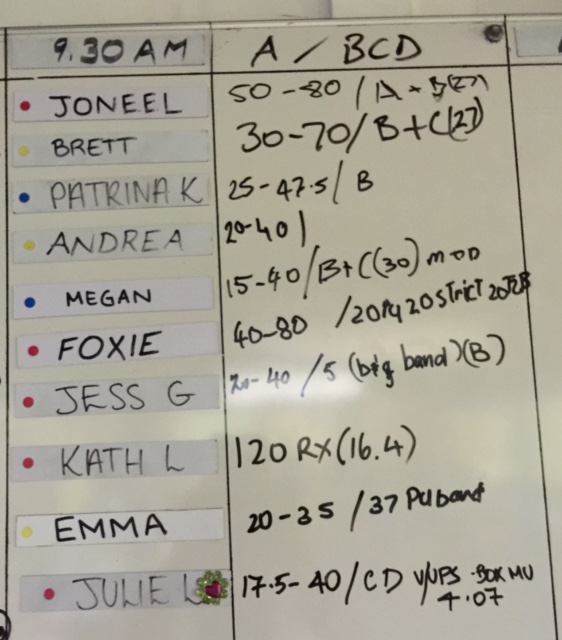 9.30 AM A / BCD
JONEEL 50-80 / A + B(27)
BRETT 30-70/ B+C(27)
PATRINA K 25-47.5/ B
ANDREA 20-40 |
MEGAN 15-40/B+C(30) mod
FOXIE 40-80 /20 20 strict 20
JESS G 20-40 /5 (big band)(B)
KATH L 120 RX(16.4)
EMMA 20-35 /37 PU band
JULIE L 17.5-40/CD MU
4.07